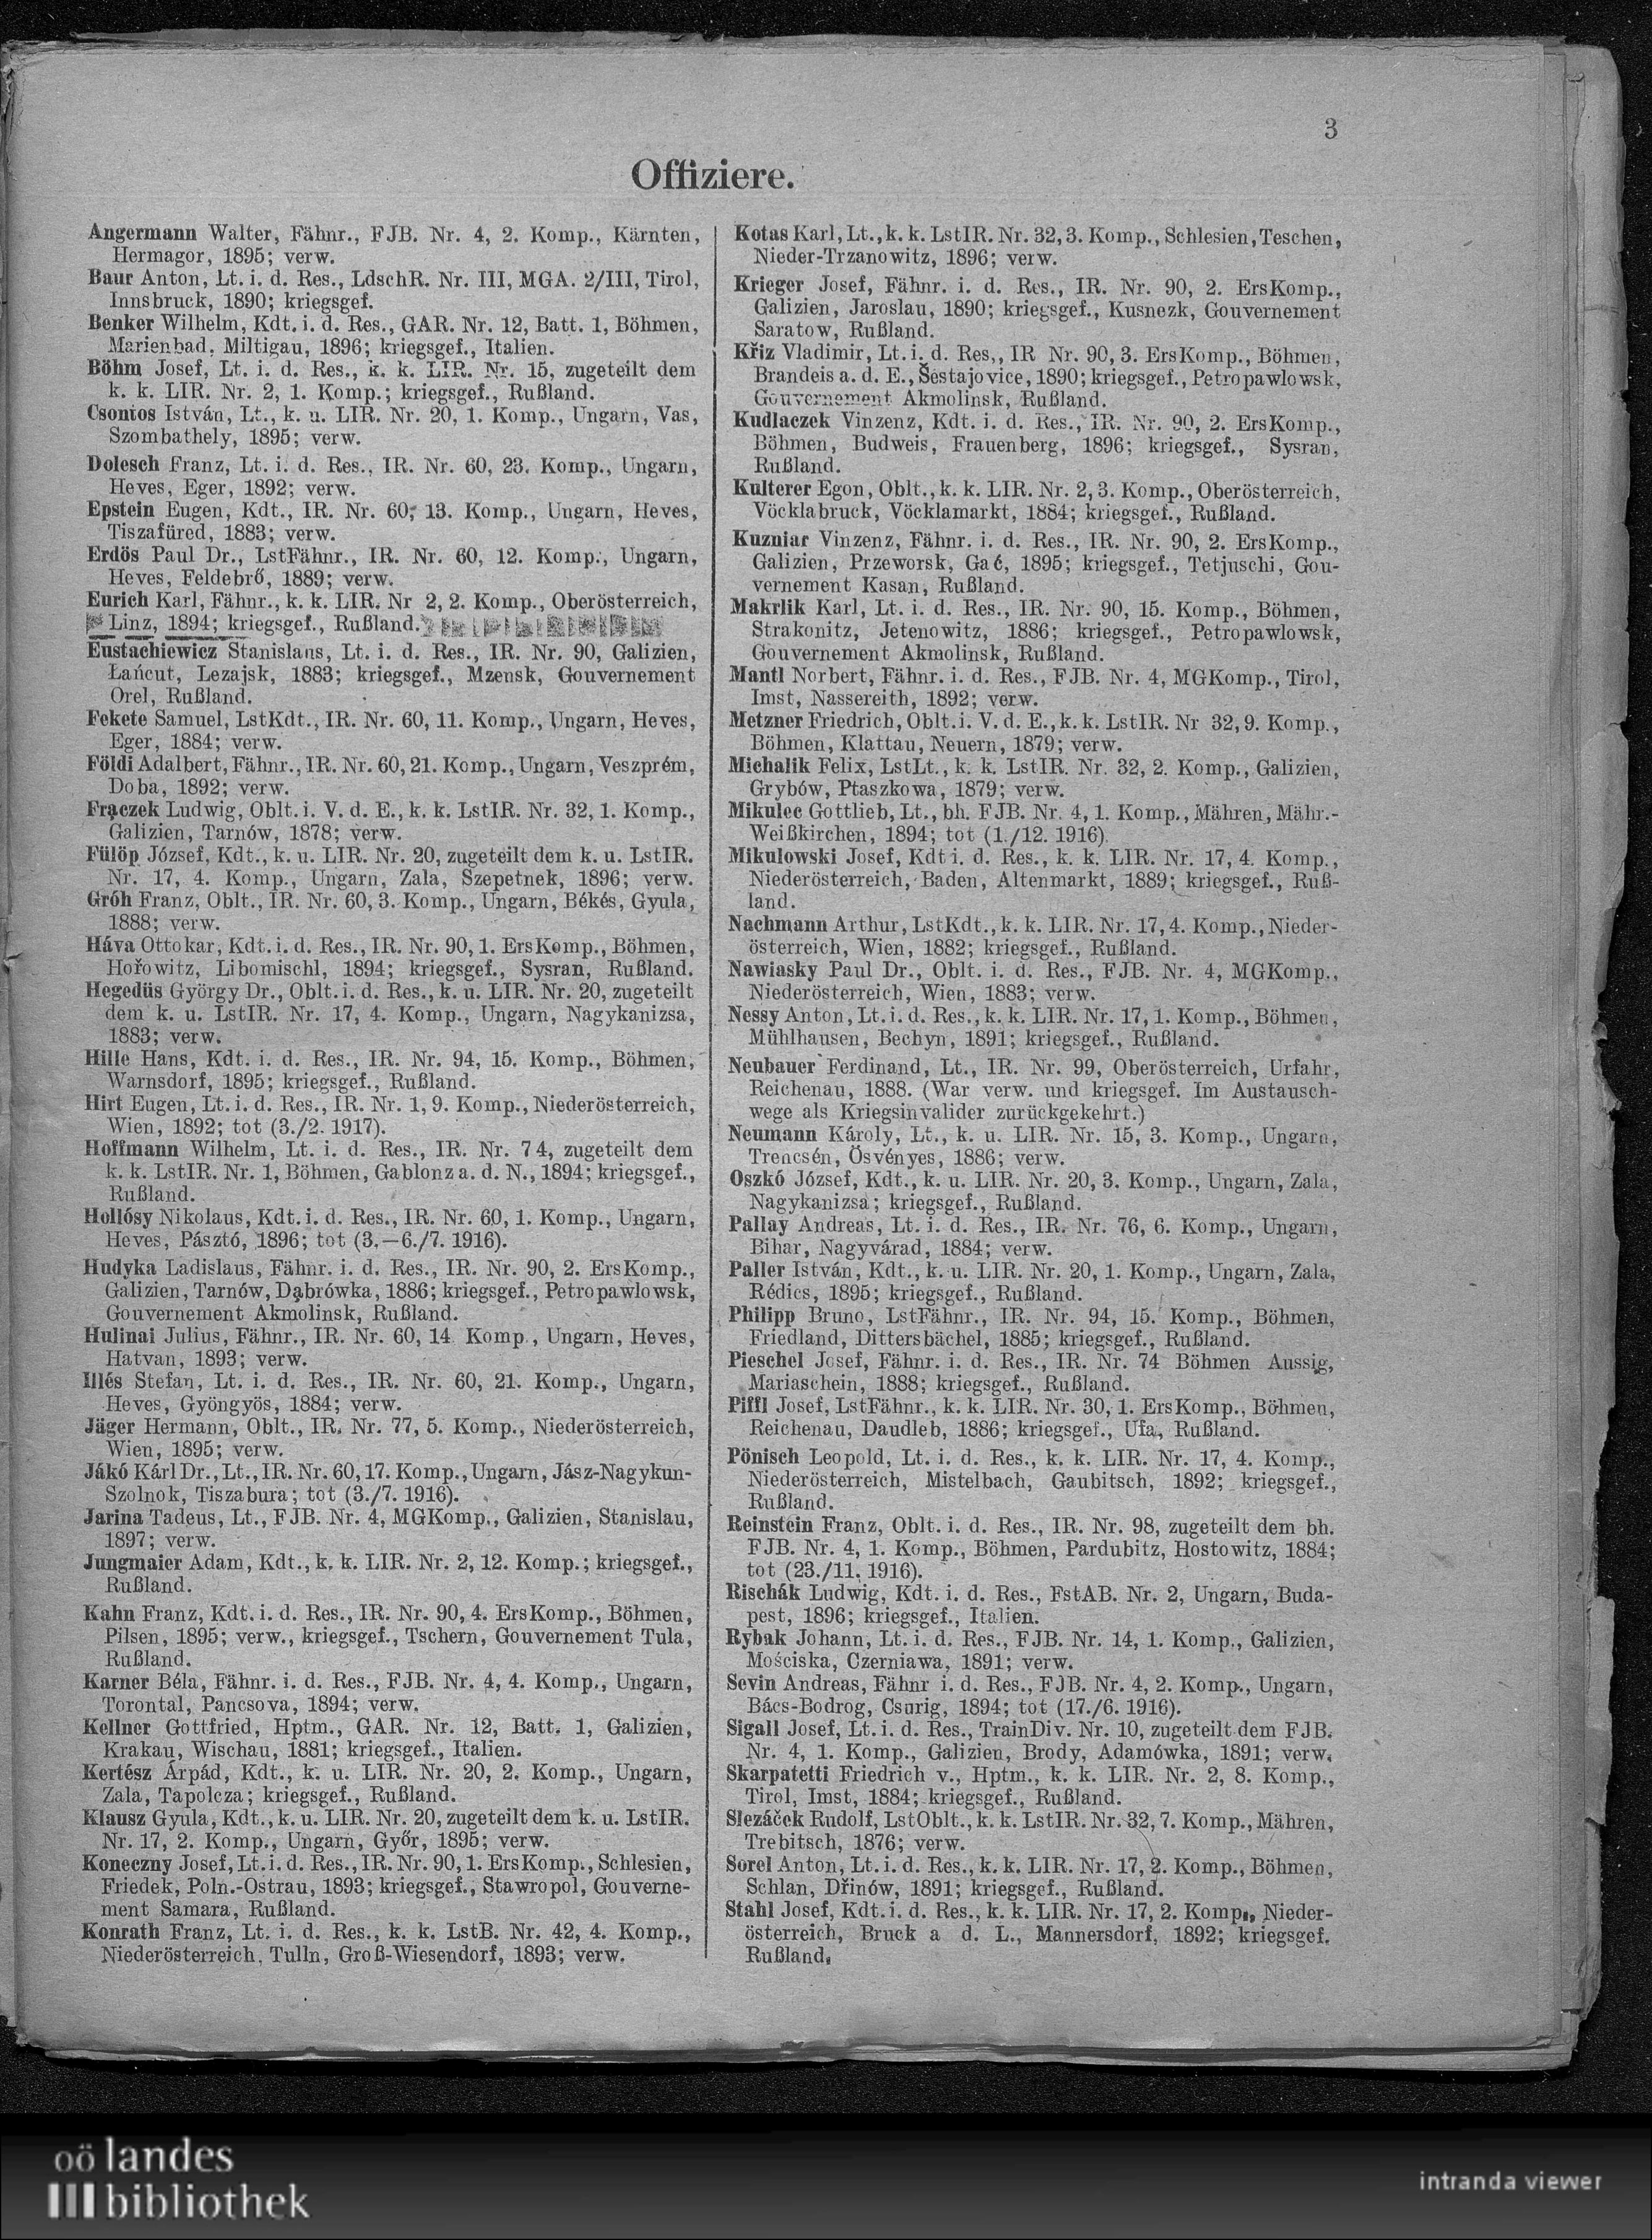 3
Offiziere.
Angermann Walter, Fähnr., FJB. Nr. 4, 2. Komp., Kärnten,
Hermagor, 1895; verw.
Baur Anton, Lt. i. d. Res., LdschR. Nr. III, MGA. 2/III, Tirol,
Innsbruck, 1890; kriegsgef.
Benker Wilhelm, Kdt. i. d. Res., GAR. Nr. 12, Batt. 1, Böhmen,
Marienbad, Miltigau, 1896; kriegsgef., Italien.
Böhm Josef, Lt. i. d. Res., k. k. LIR. Nr. 15, zugeteilt dem
k. k. LIR. Nr. 2, 1. Komp.; kriegsgef., Rußland.
Csontos István, Lt., k. u. LIR. Nr. 20, 1. Komp., Ungarn, Vas,
Szombathely, 1895; verw.
Dolesch Franz, Lt. i. d. Res., IR. Nr. 60, 23. Komp., Ungarn,
Heves, Eger, 1892; verw.
Epstein Eugen, Kdt., IR. Nr. 60, 13. Komp., Ungarn, Heves,
Tiszafüred, 1883; verw.
Erdös Paul Dr., LstFähnr., IR. Nr. 60, 12. Komp., Ungarn,
Heves, Feldebrő, 1889; verw.
Eurich Karl, Fähnr., k. k. LIR. Nr 2, 2. Komp., Oberösterreich,
Linz, 1894; kriegsgef., Rußland.
Eustachiewicz Stanislaus, Lt. i. d. Res., IR. Nr. 90, Galizien,
Łańcut, Lezajsk, 1883; kriegsgef., Mzensk, Gouvernement
Orel, Rußland.
Fekete Samuel, LstKdt., IR. Nr. 60, 11. Komp., Ungarn, Heves,
Eger, 1884; verw.
Földi Adalbert, Fähnr., IR. Nr. 60, 21. Komp., Ungarn, Veszprém,
Doba, 1892; verw.
Frączek Ludwig, Oblt. i. V. d. E., k. k. LstIR. Nr. 32, 1. Komp.,
Galizien, Tarnów, 1878; verw.
Fülöp József, Kdt., k. u. LIR. Nr. 20, zugeteilt dem k. u. LstIR.
Nr. 17, 4. Komp., Ungarn, Zala, Szepetnek, 1896; verw.
Gróh Franz, Oblt., IR. Nr. 60, 3. Komp., Ungarn, Békés, Gyula,
1888; verw.
Háva Ottokar, Kdt. i. d. Res., IR. Nr. 90, 1. ErsKomp., Böhmen,
Hořowitz, Libomischl, 1894; kriegsgef., Sysran, Rußland.
Hegedüs György Dr., Oblt. i. d. Res., k. u. LIR. Nr. 20, zugeteilt
dem k. u. LstIR. Nr. 17, 4. Komp., Ungarn, Nagykanizsa,
1883; verw.
Hille Hans, Kdt. i. d. Res., IR. Nr. 94, 15. Komp., Böhmen,
Warnsdorf, 1895; kriegsgef., Rußland.
Hirt Eugen, Lt. i. d. Res., IR. Nr. 1, 9. Komp., Niederösterreich,
Wien, 1892; tot (3./2. 1917).
Hoffmann Wilhelm, Lt. i. d. Res., IR. Nr. 74, zugeteilt dem
k. k. LstIR. Nr. 1, Böhmen, Gablonz a. d. N., 1894; kriegsgef.,
Rußland.
Hollósy Nikolaus, Kdt. i. d. Res., IR. Nr. 60, 1. Komp., Ungarn,
Heves, Pásztó, 1896; tot (3.—6./7. 1916).
Hudyka Ladislaus, Fähnr. i. d. Res., IR. Nr. 90, 2. ErsKomp.,
Galizien, Tarnów, Dąbrówka, 1886; kriegsgef., Petropawlowsk,
Gouvernement Akmolinsk, Rußland.
Hulinai Julius, Fähnr., IR. Nr. 60, 14. Komp., Ungarn, Heves,
Hatvan, 1893; verw.
Illés Stefan, Lt. i. d. Res., IR. Nr. 60, 21. Komp., Ungarn,
Heves, Gyöngyös, 1884; verw.
Jäger Hermann, Oblt., IR. Nr. 77, 5. Komp., Niederösterreich,
Wien, 1895; verw.
Jákó Kárl Dr., Lt., IR. Nr. 60, 17. Komp., Ungarn, Jász-Nagykun-
Szolnok, Tiszabura; tot (3./7. 1916).
Jarina Tadeus, Lt., FJB. Nr. 4, MGKomp., Galizien, Stanislau,
1897; verw.
Jungmaier Adam, Kdt., k. k. LIR. Nr. 2, 12. Komp.; kriegsgef.,
Rußland.
Kahn Franz, Kdt. i. d. Res., IR. Nr. 90, 4. ErsKomp., Böhmen,
Pilsen, 1895; verw., kriegsgef., Tschern, Gouvernement Tula,
Rußland.
Karner Béla, Fähnr. i. d. Res., FJB. Nr. 4, 4. Komp., Ungarn,
Torontal, Pancsova, 1894; verw.
Kellner Gottfried, Hptm., GAR. Nr. 12, Batt. 1, Galizien,
Krakau, Wischau, 1881; kriegsgef., Italien.
Kertész Árpád, Kdt., k. u. LIR. Nr. 20, 2. Komp., Ungarn,
Zala, Tapolcza; kriegsgef., Rußland.
Klausz Gyula, Kdt., k. u. LIR. Nr. 20, zugeteilt dem k. u. LstIR.
Nr. 17, 2. Komp., Ungarn, Győr, 1895; verw.
Koneczny Josef, Lt. i. d. Res., IR. Nr. 90, 1. ErsKomp., Schlesien,
Friedek, Poln.-Ostrau, 1893; kriegsgef., Stawropol, Gouverne-
ment Samara, Rußland.
Konrath Franz, Lt. i. d. Res., k. k. LstB. Nr. 42, 4. Komp.,
Niederösterreich, Tulln, Groß-Wiesendorf, 1893; verw.
Kotas Karl, Lt., k. k. LstIR. Nr. 32, 3. Komp., Schlesien, Teschen,
Nieder-Trzanowitz, 1896; verw.
Krieger Josef, Fähnr. i. d. Res., IR. Nr. 90, 2. ErsKomp.,
Galizien, Jaroslau, 1890; kriegsgef., Kusnezk, Gouvernement
Saratow, Rußland.
Křiz Vladimir, Lt. i. d. Res., IR Nr. 90, 3. ErsKomp., Böhmen,
Brandeis a. d. E., Šestajovice, 1890; kriegsgef., Petropawlowsk,
Gouvernement Akmolinsk, Rußland.
Kudlaczek Vinzenz, Kdt. i. d. Res., IR. Nr. 90, 2. ErsKomp.,
Böhmen, Budweis, Frauenberg, 1896; kriegsgef., Sysran,
Rußland.
Kulterer Egon, Oblt., k. k. LIR. Nr. 2, 3. Komp., Oberösterreich,
Vöcklabruck, Vöcklamarkt, 1884; kriegsgef., Rußland.
Kuzniar Vinzenz, Fähnr. i. d. Res., IR. Nr. 90, 2. ErsKomp.,
Galizien, Przeworsk, Gać, 1895; kriegsgef., Tetjuschi, Gou-
vernement Kasan, Rußland.
Makrlik Karl, Lt. i. d. Res., IR. Nr. 90, 15. Komp., Böhmen,
Strakonitz, Jetenowitz, 1886; kriegsgef., Petropawlowsk,
Gouvernement Akmolinsk, Rußland.
Mantl Norbert, Fähnr. i. d. Res., FJB. Nr. 4, MGKomp., Tirol,
Imst, Nassereith, 1892; verw.
Metzner Friedrich, Oblt. i. V. d. E., k. k. LstIR. Nr 32, 9. Komp.,
Böhmen, Klattau, Neuern, 1879; verw.
Michalik Felix, LstLt., k. k. LstIR. Nr. 32, 2. Komp., Galizien,
Grybów, Ptaszkowa, 1879; verw.
Mikulec Gottlieb, Lt., bh. FJB. Nr. 4, 1. Komp., Mähren, Mähr.-
Weißkirchen, 1894; tot (1./12. 1916).
Mikulowski Josef, Kdt i. d. Res., k. k. LIR. Nr. 17, 4. Komp.,
Niederösterreich, Baden, Altenmarkt, 1889; kriegsgef., Ruß-
land.
Nachmann Arthur, LstKdt., k. k. LIR. Nr. 17, 4. Komp., Nieder-
österreich, Wien, 1882; kriegsgef., Rußland.
Nawiasky Paul Dr., Oblt. i. d. Res., FJB. Nr. 4, MGKomp.,
Niederösterreich, Wien, 1883; verw.
Nessy Anton, Lt. i. d. Res., k. k. LIR. Nr. 17, 1. Komp., Böhmen,
Mühlhausen, Bechyn, 1891; kriegsgef., Rußland.
Neubauer Ferdinand, Lt., IR. Nr. 99, Oberösterreich, Urfahr,
Reichenau, 1888. (War verw. und kriegsgef. Im Austausch-
wege als Kriegsinvalider zurückgekehrt.)
Neumann Károly, Lt., k. u. LIR. Nr. 15, 3. Komp., Ungarn,
Trencsén, Ösvényes, 1886; verw.
Oszkó József, Kdt., k. u. LIR. Nr. 20, 3. Komp., Ungarn, Zala,
Nagykanizsa; kriegsgef., Rußland.
Pallay Andreas, Lt. i. d. Res., IR. Nr. 76, 6. Komp., Ungarn,
Bihar, Nagyvárad, 1884; verw.
Paller István, Kdt., k. u. LIR. Nr. 20, 1. Komp., Ungarn, Zala,
Rédics, 1895; kriegsgef., Rußland.
Philipp Bruno, LstFähnr., IR. Nr. 94, 15. Komp., Böhmen,
Friedland, Dittersbächel, 1885; kriegsgef., Rußland.
Pieschel Josef, Fähnr. i. d. Res., IR. Nr. 74 Böhmen Aussig,
Mariaschein, 1888; kriegsgef., Rußland.
Piffl Josef, LstFähnr., k. k. LIR. Nr. 30, 1. ErsKomp., Böhmen,
Reichenau, Daudleb, 1886; kriegsgef., Ufa, Rußland.
Pönisch Leopold, Lt. i. d. Res., k. k. LIR. Nr. 17, 4. Komp.,
Niederösterreich, Mistelbach, Gaubitsch, 1892; kriegsgef.,
Rußland.
Reinstein Franz, Oblt. i. d. Res., IR. Nr. 98, zugeteilt dem bh.
FJB. Nr. 4, 1. Komp., Böhmen, Pardubitz, Hostowitz, 1884;
tot (23./11. 1916).
Rischák Ludwig, Kdt. i. d. Res., FstAB. Nr. 2, Ungarn, Buda-
pest, 1896; kriegsgef., Italien.
Rybak Johann, Lt. i. d. Res., FJB. Nr. 14, 1. Komp., Galizien,
Mościska, Czerniawa, 1891; verw.
Sevin Andreas, Fähnr i. d. Res., FJB. Nr. 4, 2. Komp., Ungarn,
Bács-Bodrog, Csurig, 1894; tot (17./6. 1916).
Sigall Josef, Lt. i. d. Res., TrainDiv. Nr. 10, zugeteilt dem FJB.
Nr. 4, 1. Komp., Galizien, Brody, Adamówka, 1891; verw.
Skarpatetti Friedrich v., Hptm., k. k. LIR. Nr. 2, 8. Komp.,
Tirol, Imst, 1884; kriegsgef., Rußland.
Slezáček Rudolf, LstOblt., k. k. LstIR. Nr. 32, 7. Komp., Mähren,
Trebitsch, 1876; verw.
Sorel Anton, Lt. i. d. Res., k. k. LIR. Nr. 17, 2. Komp., Böhmen,
Schlan, Dřinów, 1891; kriegsgef., Rußland.
Stahl Josef, Kdt. i. d. Res., k. k. LIR. Nr. 17, 2. Komp., Nieder-
österreich, Bruck a d. L., Mannersdorf, 1892; kriegsgef.
Rußland.
oö landes
bibliothek
intranda viewer